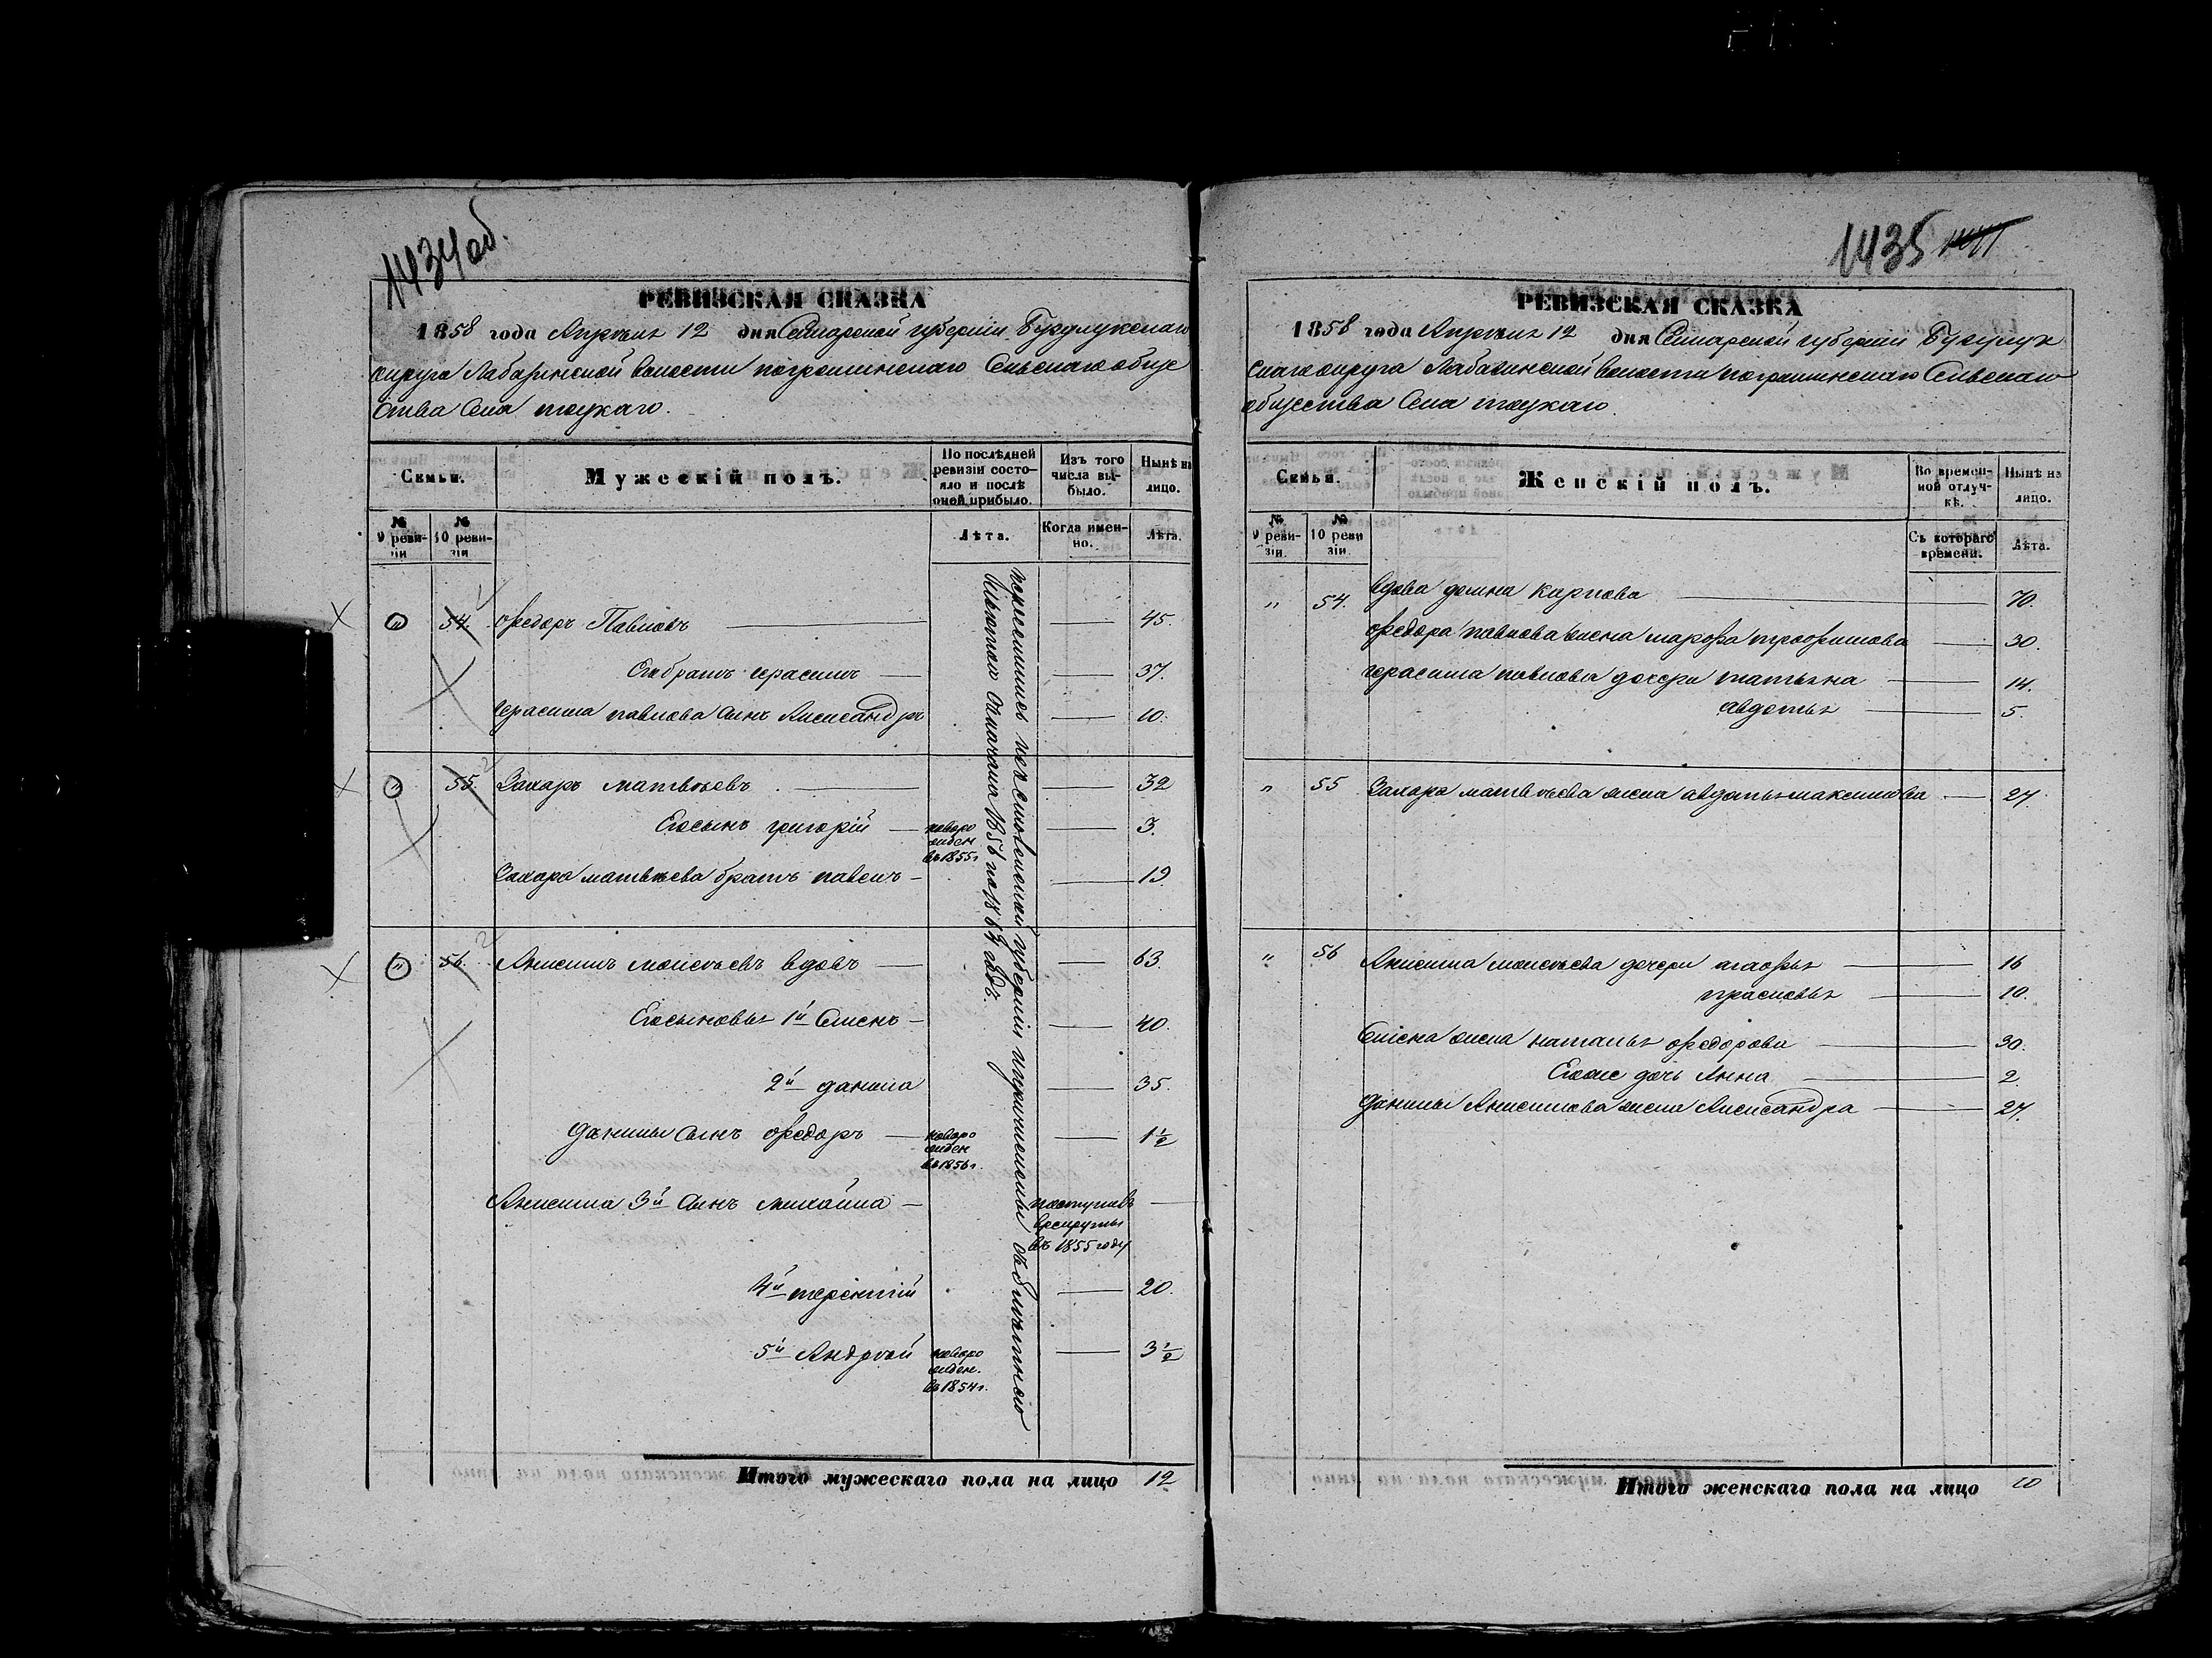 1434об.
РЕВИЗСКАЯ СКАЗКА
1858 года Апрѣля 12 дня Самарской губерніи Бузулукскаго
округа Лабазинской волости погроминскаго Сельскаго обще
ства Села тоцкаго.
Семьи.
Мужескій полъ.
По послѣдней ревизіи состояло и послѣ оной прибыло.
Изъ того числа выбыло.
Нынѣ на лицо.
№ 9 ревизіи
№ 10 ревизіи
Лѣта.
Когда именно.
Лѣта.
" 54. Ѳедоръ Павловъ 45.
Его братъ герасимъ 37.
герасима павлова сынъ Александръ 10.
" 55. Захаръ матвѣевъ 32
Его сынъ григорій новорожден въ 1855г 3.
Захара матвѣева братъ павелъ 19.
" 56. Анисимъ моисѣевъ вдовъ 63.
Его сыновья 1й Семенъ 40.
2й данила 35.
данилы сынъ Ѳедоръ новорожден въ 1856г. 1½
Анисима 3й сынъ михайла поступилъ в рекруты въ 1855 году
4й терентій 20.
5й Андрѣй новорожден. въ 1854г. 3½
губерніи
льготою начала 1856 по 1864 годъ.
Итого мужескаго пола на лицо 12
1435
РЕВИЗСКАЯ СКАЗКА
1858 года Апрѣля 12 дня Самарской губерніи Бузулук
скаго округа Лабазинской волости погроминскаго Сельскаго
общества Села тоцкаго.
Семьи.
Женскій полъ.
Во временной отлучкѣ.
Нынѣ на лицо.
№ 9 ревизіи.
№ 10 ревизіи.
Съ котораго времени.
Лѣта.
" 54. вдова домна карпова 70.
Ѳедора павлова жена марѳа троѳимова 30.
герасима павлова дочери татьяна 14.
авдотья 5.
" 55 Захара матвѣева жена авдотья максимова 27.
" 56 Анисима моисѣева дочери агаѳья 16
прасковья 10.
Семена жена наталья ѳедорова 30.
Его же дочь Анна 2.
Данилы Анисимова жена Александра 27.
Итого женскаго пола на лицо 10